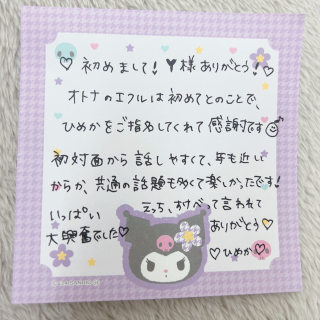 ♡初めまして！Y様ありがとう！♡
オトナのエフルは初めてとのことで、
ひめかをご指名してくれて感謝です
初対面から話しやすくて、年も近い
からか、共通の話題も多くて楽しかったです！
えっち、すけべって言われて
いっぱい
大興奮でした♡
ありがとう♡
♡ひめか♡